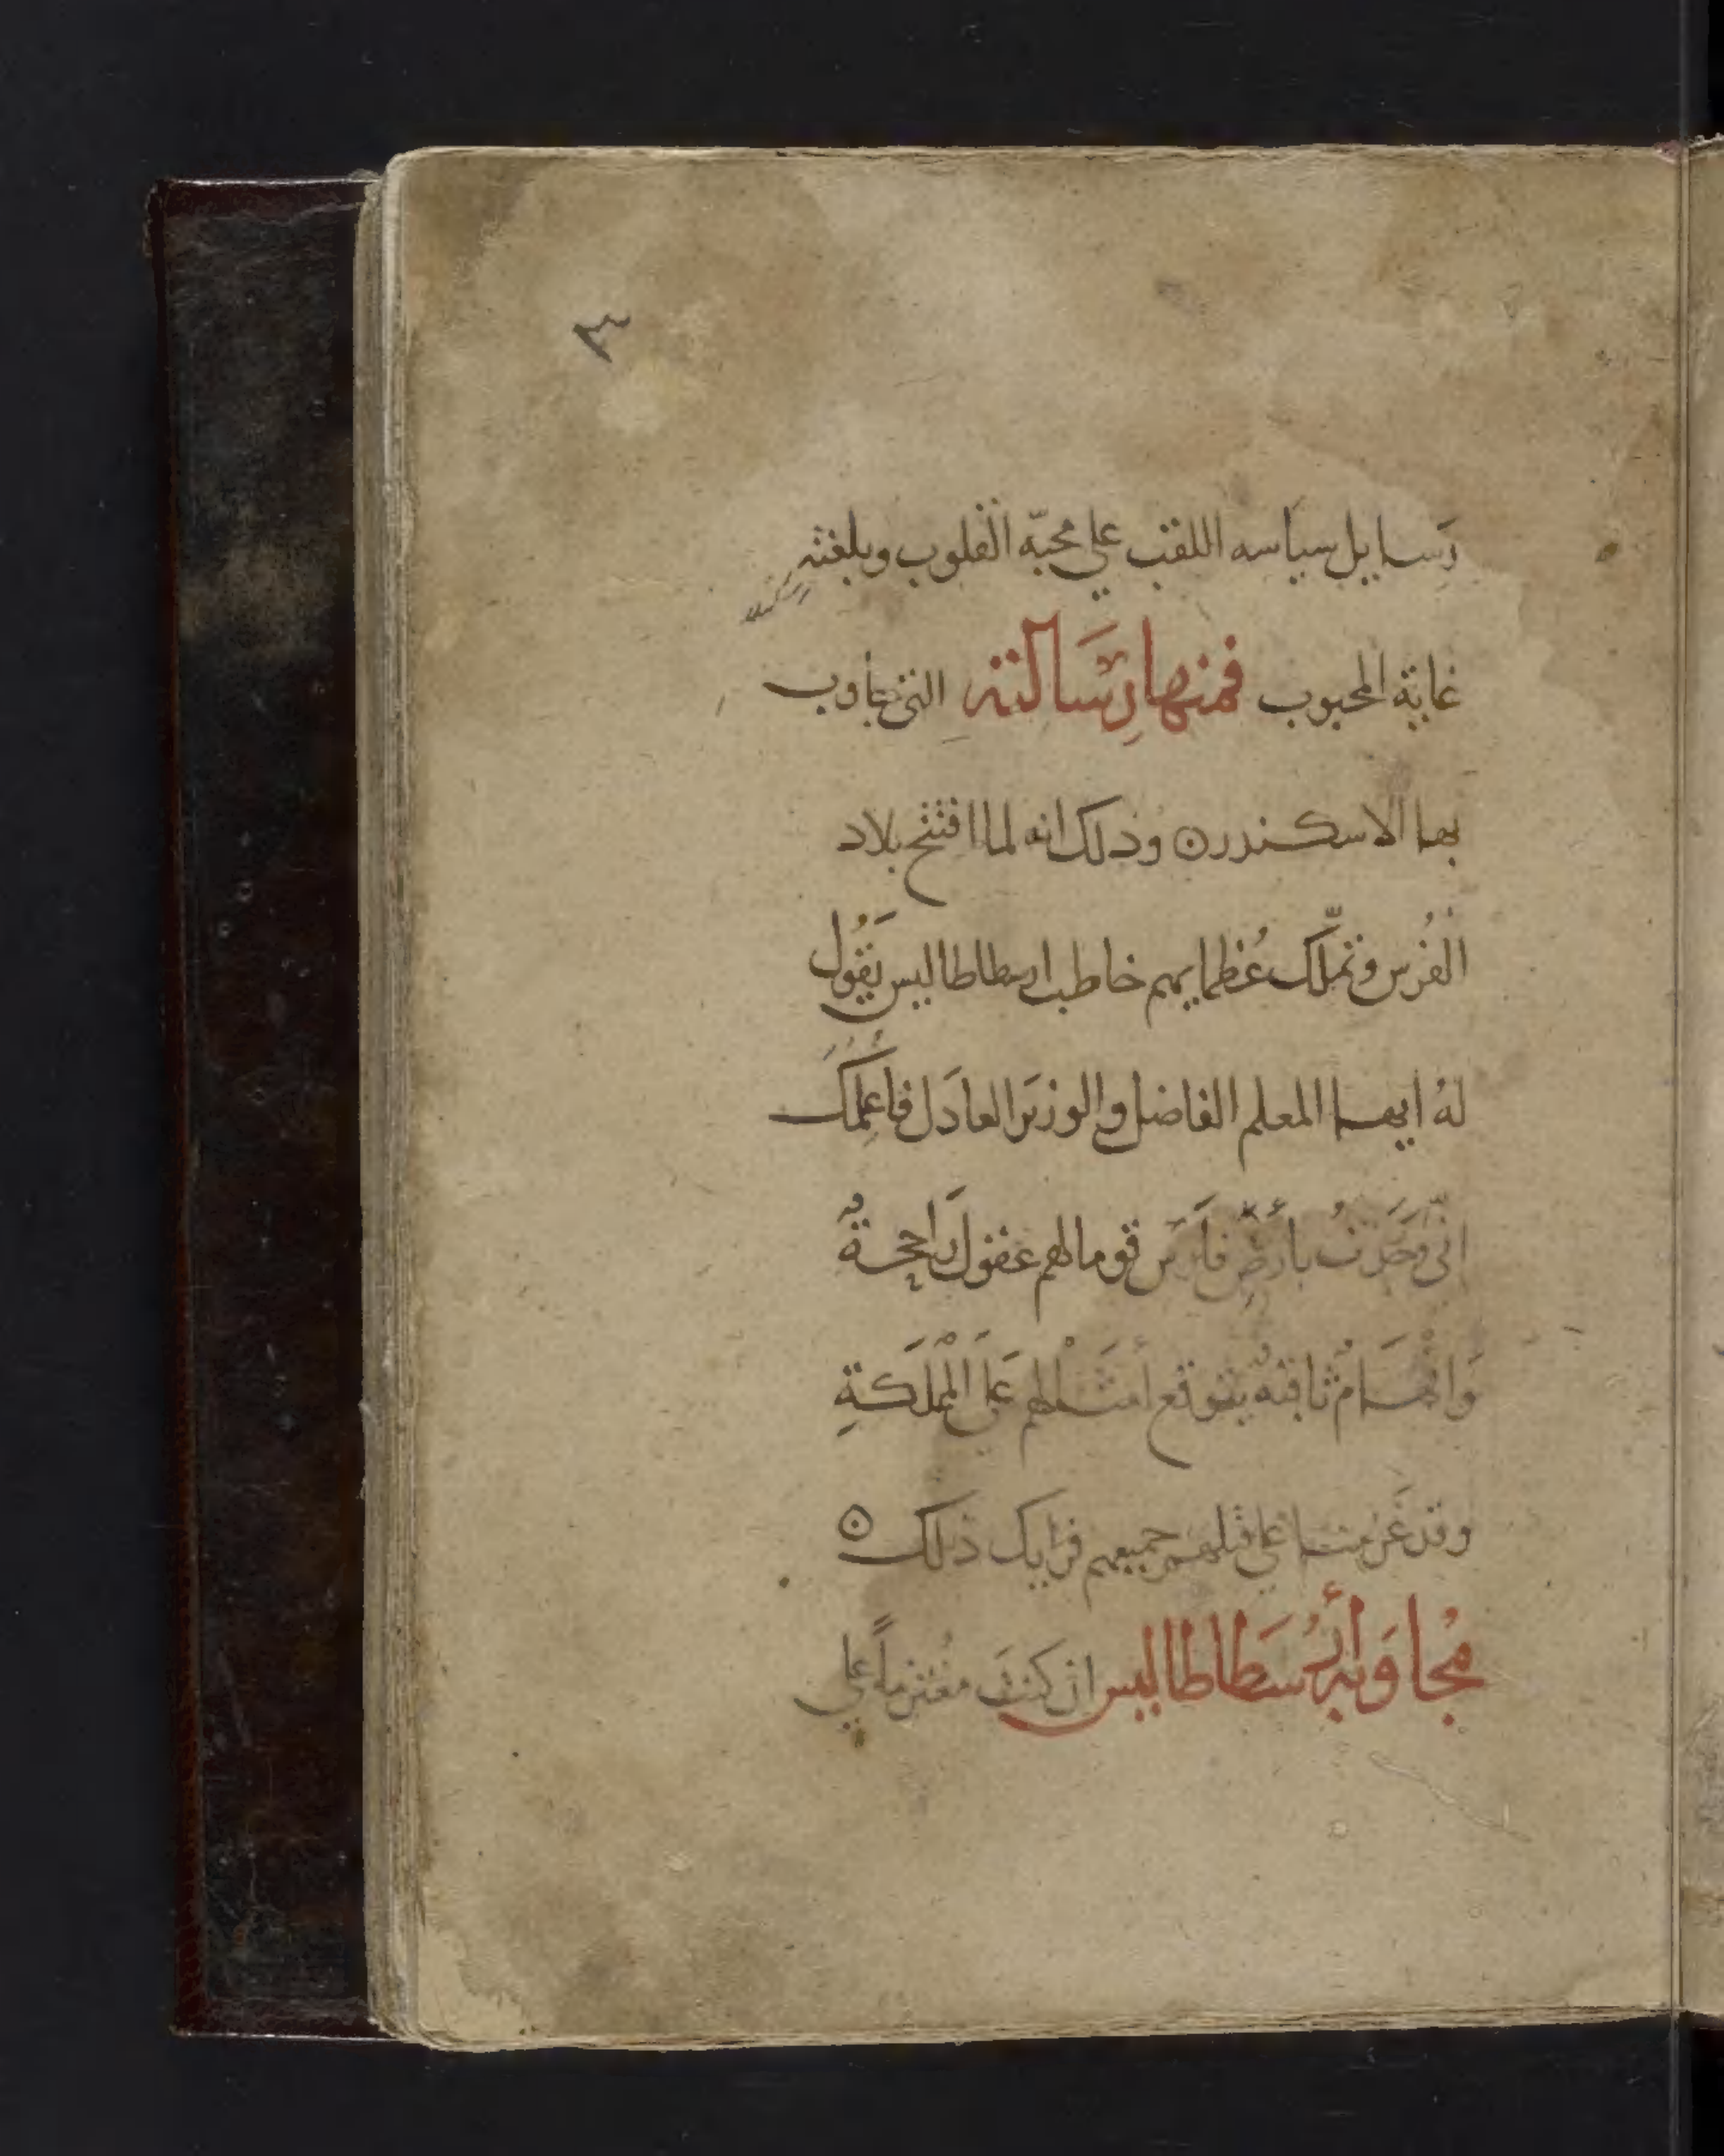 ٣
رَسايل سياسه اللقب علي محبّه القلوب وبلغته
غاية المحبوب فمنها رِسَالته التي جاوب
بها الاسكندر ن وذلك انه لما افتتح بلاد
الفُرس وتملّك عُظمايهم خاطب ارسطاطاليس يَقُول
لهُ ايها المعلم الفاضل والوزيَر العادَل فاعِلمكَ
انّي وَجَدتُ بأرضِ فارَس قوما لهم عقول رَاجحةُ
وَافْهَامُ ثاقبهُ يتوقع أمثَالهم عَلَى الْمملَكةِ
وقد عَزمنا علي قتلهم جميعهم فرايك ذلك ن
مُجاوَبة أرُسَطاطاليس ان كنتَ مُعتزماً علي